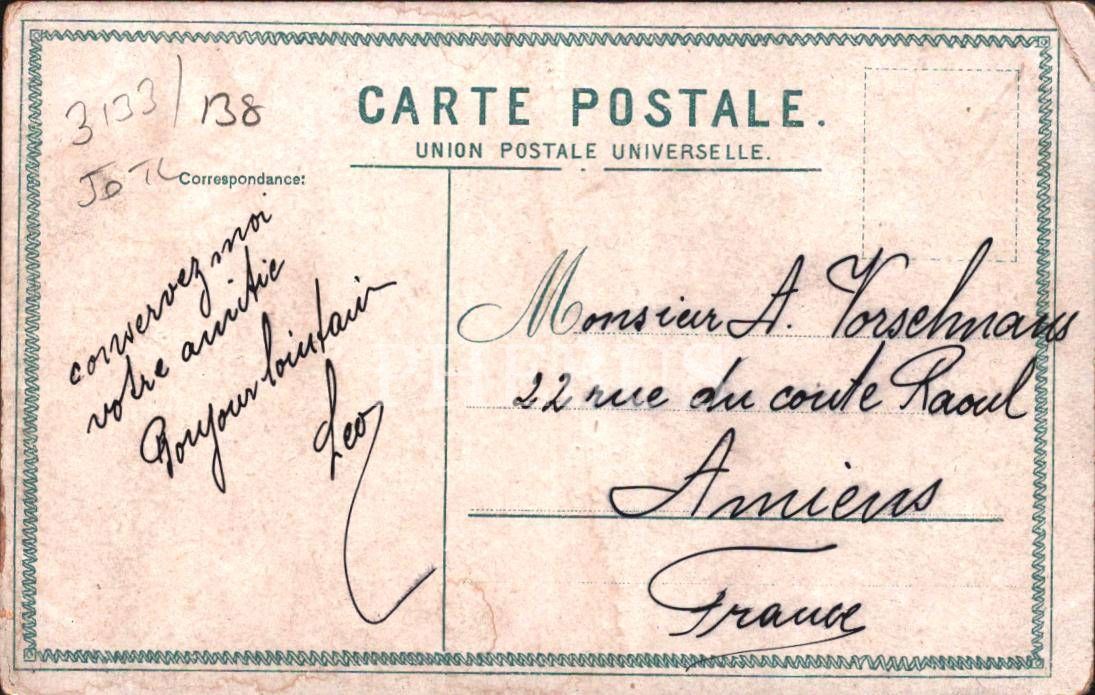 3133/138
CARTE POSTALE.
UNION POSTALE UNIVERSELLE.
Correspondance:
conservez moi
votre amitié
Bonjour lointain
Leo
Monsieur A. Vorschnans
22 rue du conte Raoul
Amiens
France
PHENUS